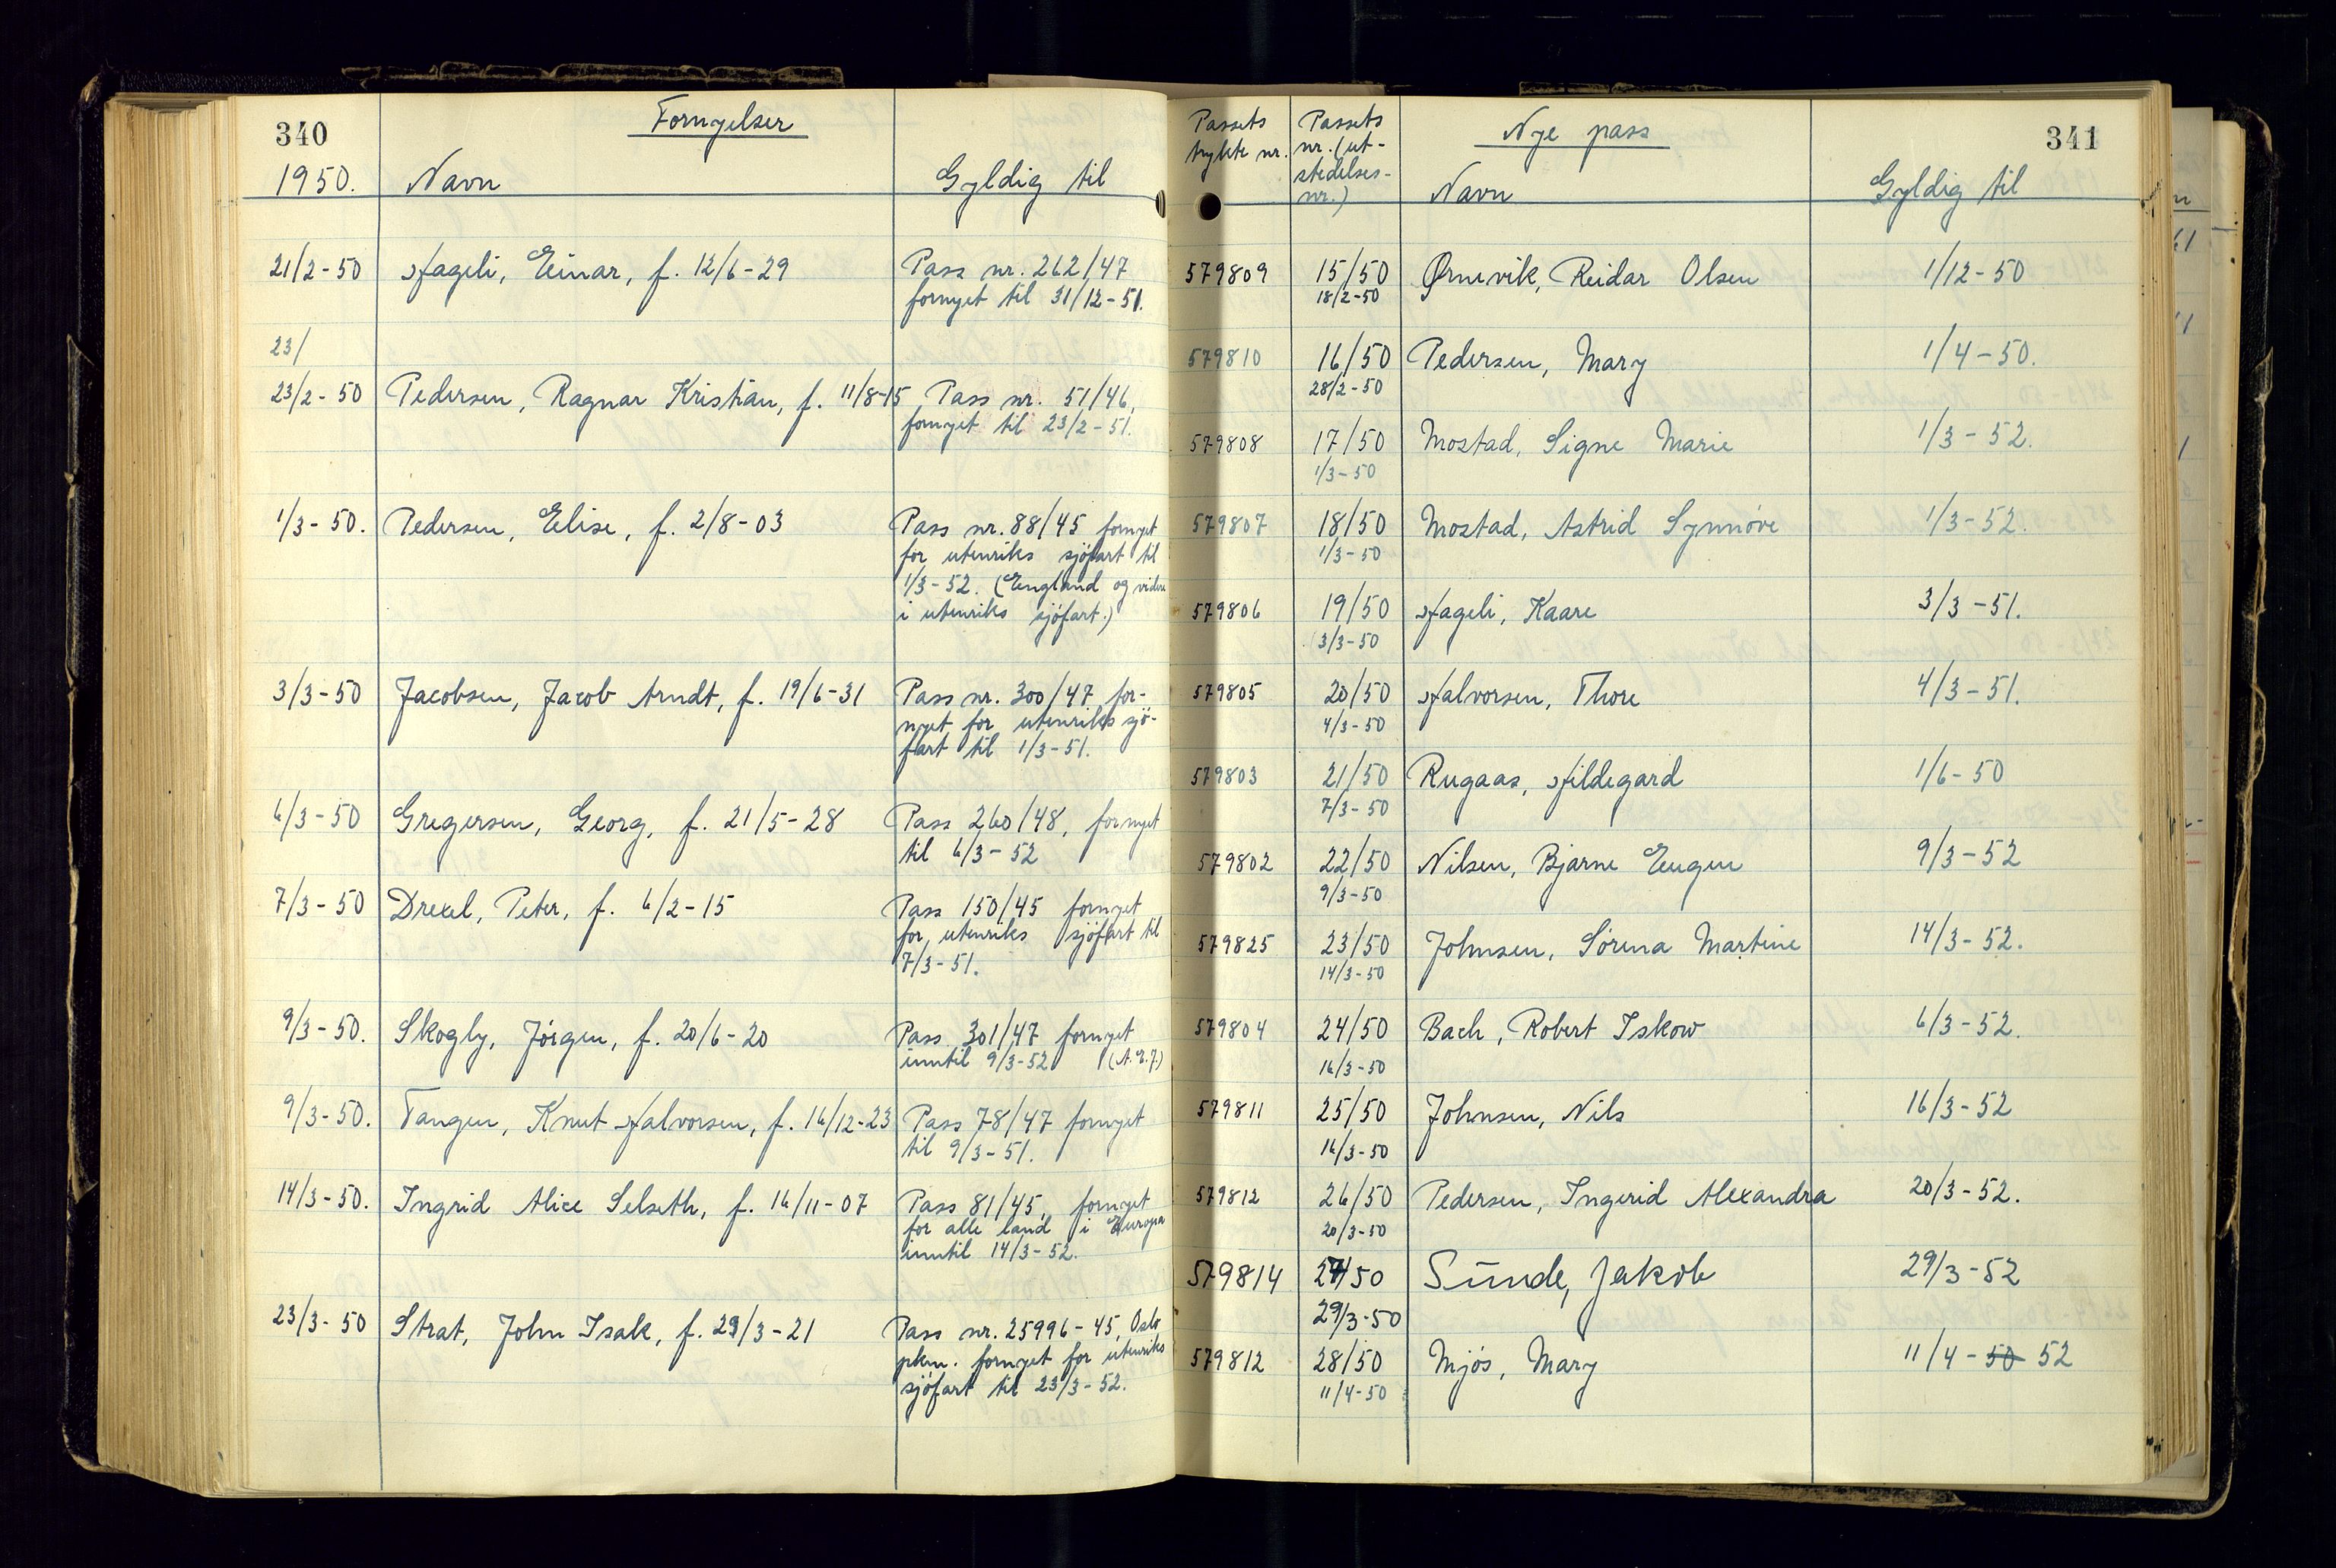 340
Fornyelser
1950. Navn Gyldig til
21/2-50 Hageli, Einar, f. 12/6-29 Pass nr. 262/47
fornyet til 31/12-51.
23/
23/2-50 Pedersen, Ragnar Kristian, f. 11/8-15 Pass nr. 51/46,
fornyet til 23/2-51.
1/3-50. Pedersen, Elise, f. 2/8-03 Pass nr. 88/45 fornyet
for utenriks sjöfart til
1/3-52. (England og videre
i utenriks sjöfart.)
3/3-50 Jacobsen, Jacob Arndt, f. 19/6-31 Pass nr. 300/47 for-
nyet for utenriks sjö-
fart til 1/3-51.
6/3-50 Gregersen, Georg, f. 21/5-28 Pass 260/48, fornyet
til 6/3-52
7/3-50 Drexel, Peter, f. 6/2-15 Pass 150/45 fornyet
for utenriks sjöfart til
7/3-51.
9/3-50. Skogly, Jörgen, f. 20/6-20 Pass 301/47 fornyet
inntil 9/3-52
9/3-50. Tangen, Knut Halvorsen, f. 16/12-23 Pass 78/47 fornyet
til 9/3-51.
14/3-50. Ingrid Alice Selseth, f. 16/11-07 Pass 81/45, fornyet
for alle land i Europa
inntil 14/3-52.
23/3-50 Strat, John Isak, f. 29/3-21 Pass nr. 25996-45, Oslo
pkm. fornyet for utenriks
sjöfart til 23/3-52.
341
Passets
trykte nr.
Passets
nr. (ut-
stedelses-
nr.)
Nye pass
Navn Gyldig til
579809 15/50 Ørnevik, Reidar Olsen 1/12-50
18/2-50
579810 16/50 Pedersen, Mary 1/4-50.
28/2-50
579808 17/50 Mostad, Signe Marie 1/3-52.
1/3-50
579807 18/50 Mostad, Astrid Synnöve 1/3-52.
1/3-50
579806 19/50 Hageli, Kaare 3/3-51.
3/3-50
579805 20/50 Halvorsen, Thore 4/3-51.
4/3-50
579803 21/50 Rugaas, Hildegard 1/6-50
7/3-50
579802 22/50 Nilsen, Bjarne Eugen 9/3-52
9/3-50
579825 23/50 Johnsen, Sörina Martine 14/3-52.
14/3-50
579804 24/50 Bach, Robert Iskow 6/3-52.
16/3-50
579811 25/50 Johnsen, Nils 16/3-52
16/3-50
579812 26/50 Pedersen, Ingerid Alexandra 20/3-52.
20/3-50
579814 27/50 Sunde, Jakob 29/3-52
29/3-50
579812 28/50 Mjös, Mary 11/4-50 52
11/4-50